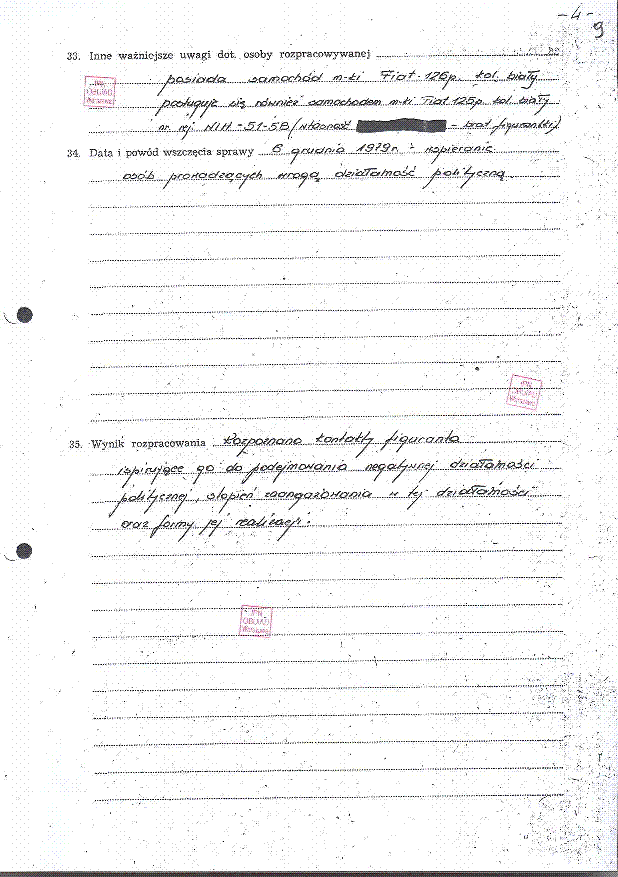 - 4 -
9
33. Inne ważniejsze uwagi dot. osoby rozpracowywanej
posiada samochód m-ki Fiat 126p. kol. biały
posługuje się również samochodem m-ki Fiat 125p. kol. biały
nr rej. (własność - brat figurantki)
34. Data i powód wszczęcia sprawy 6 grudnia 1979r. - wspieranie
osób prowadzących wrogą działalność polityczną
35. Wynik rozpracowania Rozpoznano kontakty figuranta
ispirujące go do podejmowania negatywnej działalności
politycznej, stopień zaangażowania w tej działalności
oraz formy jej realizacji.